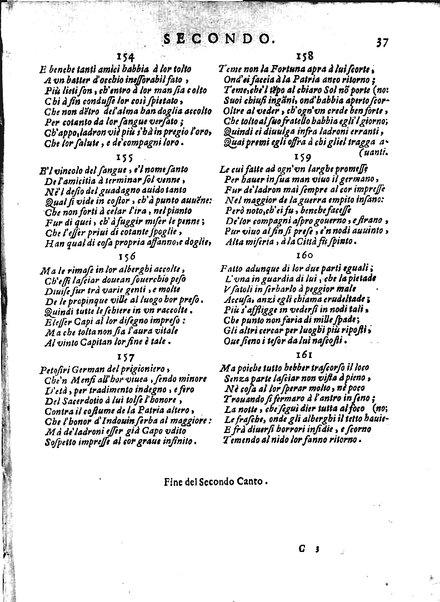 SECONDO. 37
154
E benche tanti amici habbia à lor tolto
A vn batter d'occhio inessorabil fato,
Più lieti son, ch'entro à lor man sia colto
Chi à fin condusse lor così spietato,
Che non dẽtro del'alma han doglia accolto
Per cotanto da lor sangue versato;
Ch'appo, ladron vil più s'hà in pregio l'oro,
Che lor salute, e de' compagni loro.
155
E'l vincolo del sangue, e'l nome santo
De l'amicitia à terminar sol vanne,
Nè'l desio del guadagno auido tanto
Qual si vide in costor, ch'à punto auuẽne:
Che non forti à celar l'ira, nel pianto
Fur di qui, ch'à fuggir miser le penne;
Che l'esser priui di cotante spoglie,
Han qual di cosa propria affanno, e doglie,
156
Ma le rimase in lor alberghi accolte,
Ch'essi lasciar douean souerchio peso
Diuise fur trà varie genti, e molte
De le propinque ville al luogo hor preso.
Quindi tutte le schiere in vn raccolte.
Elesser Capi al lor disegno impreso:
Ma che tolta non sia l'aura vitale
Al vinto Capitan lor fine è tale.
157
Petosiri German del prigioniero,
Che'n Menfi all'hor viuea, sendo minore
L'età, per tradimento indegno, e fiero
Del Sacerdotio à lui tolse l'honore,
Contra il costume de la Patria altero,
Che l'honor d'Indouin serba al maggiore:
Mà de' ladroni esser già Capo vdito
Sospetto impresse al cor graue infinito.
158
Teme non la Fortuna apra à lui scorte,
Ond'ei faccia à la Patria anco ritorno;
Teme, che'l tẽpo al chiaro Sol nõ porte (no:
Suoi chiusi ingãni, ond'habbia aperto scor-
Oltre al veder, ch'ogn'un crede ben forte,
Che tolto al suo fratello habbia egli'l giorno;
Quindi ei diuulga infra ladroni erranti,
Quai premi egli offra à chi gliel tragga a-
(uanti.
159
Le cui fatte ad ogn'vn larghe promesse
Per hauer in sua man viuo il germano,
Fur de' ladron mai sempre al cor impresse
Nel maggior de la guerra empito insano:
Però noto, ch'ei fu, benche facesse
De' lor compagni aspro gouerno, e strano,
Pur viuo al fin fù preso, e'n nodi auuinto,
Alta miseria, à la Città fù spinto.
160
Fatto adunque di lor due parti eguali;
L'vna in guardia di lui, che la pietade
Vsatoli in serbarlo à peggior male
Accusa, anzi egli chiama crudeltade;
Più s'affligge in vedersi in nodi tali,
Che punto non faria di mille spade;
Gli altri cercar per luoghi più riposti,
Oue sieno i tesor da lui nascosti.
161
Ma poiche tutto hebber trascorso il loco
Senza parte lasciar non vista à pieno,
Nè cosa al lor sperar molto, nè poco
Trouando si fermaro à l'antro in seno;
La notte, che seguì dier tutta al foco (no;
Le frasche, onde gli alberghi il tetto hauie-
E frà diuersi horrori infidie, e scorno
Temendo al nido lor fanno ritorno.
Fine del Secondo Canto.
C 3